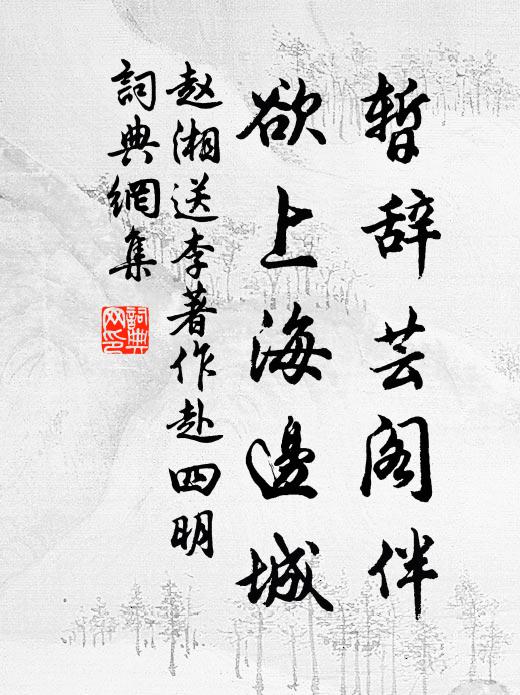 暫辞芸阁伴
欲上海邊城
赵湘送李著作赴四明
詞典網集
詞典網印